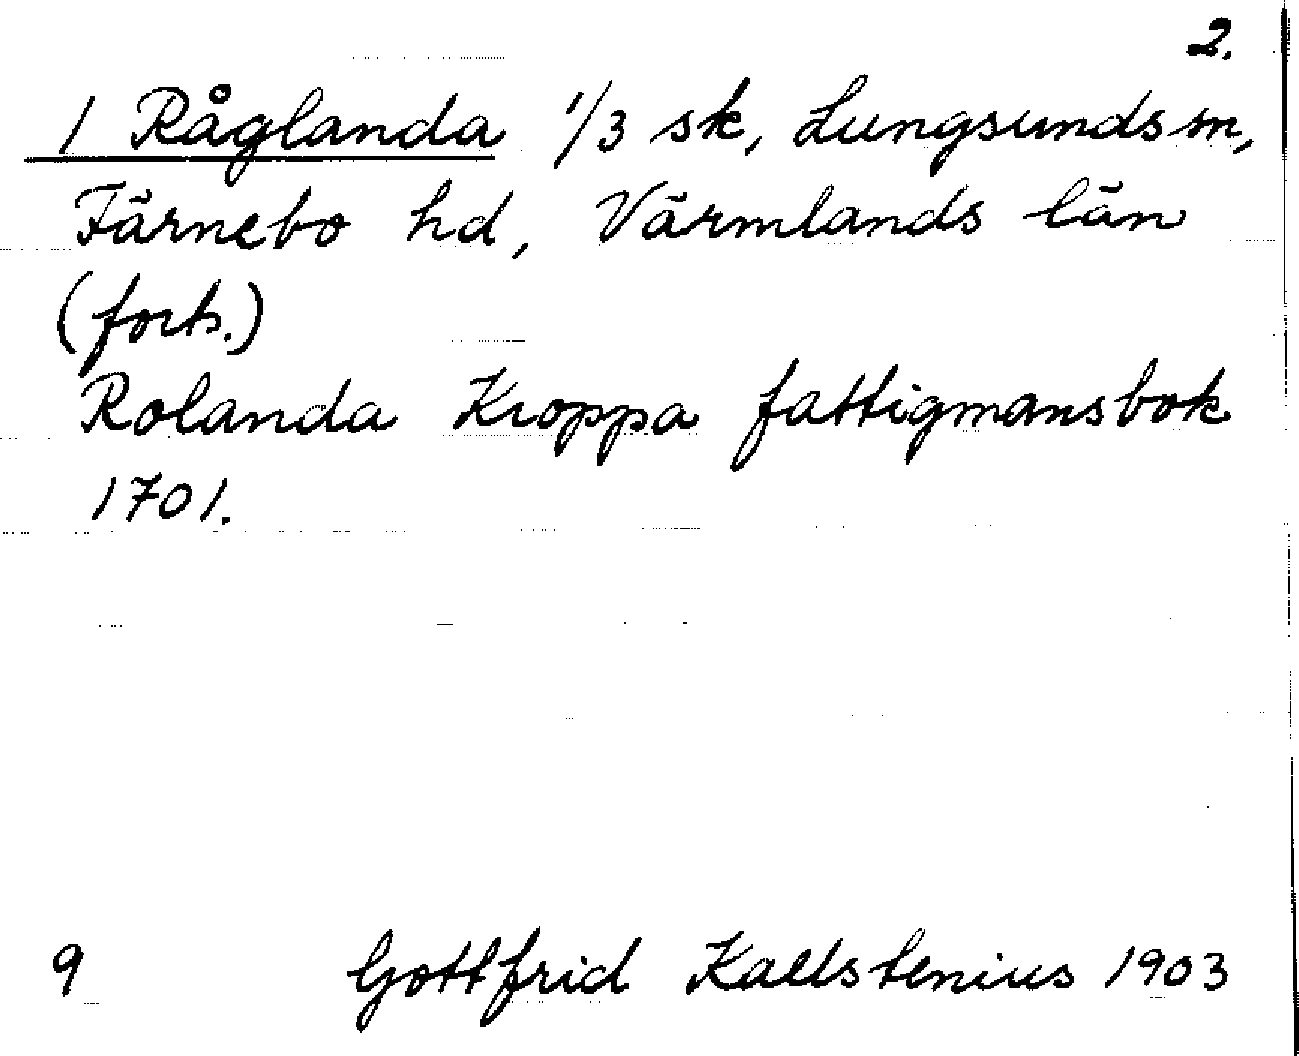 2.
1 Råglanda 1/3 sk, Lungsunds sn,
Färnebo hd, Värmlands län
(forts.)
Rolanda Kroppa fattigmansbok
1701.
9 Gottfrid Kallstenius 1903